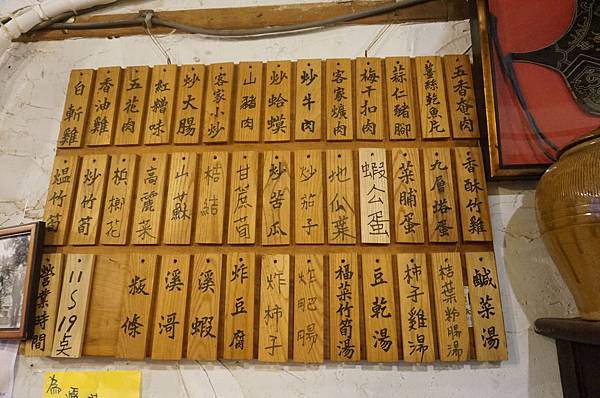 五香奄肉
薑絲乾魚片
蒜仁豬腳
梅干扣肉
客家爌肉
炒牛肉
炒蛤蟆
山豬肉
客家小炒
炒大腸
紅糟味
五花肉
香油雞
白斬雞
香酥竹雞
九層塔蛋
菜脯蛋
蝦公蛋
地瓜葉
炒茄子
炒苦瓜
甘蔗荀
桔結
山蘇
高麗菜
梹榔花
炒竹荀
熅竹荀
鹹菜湯
桔葉粉腸湯
柿子雞湯
豆乾湯
福菜竹筍湯
炸肥腸
炸柿子
炸豆腐
溪蝦
溪哥
粄條
11～19点
營業時間